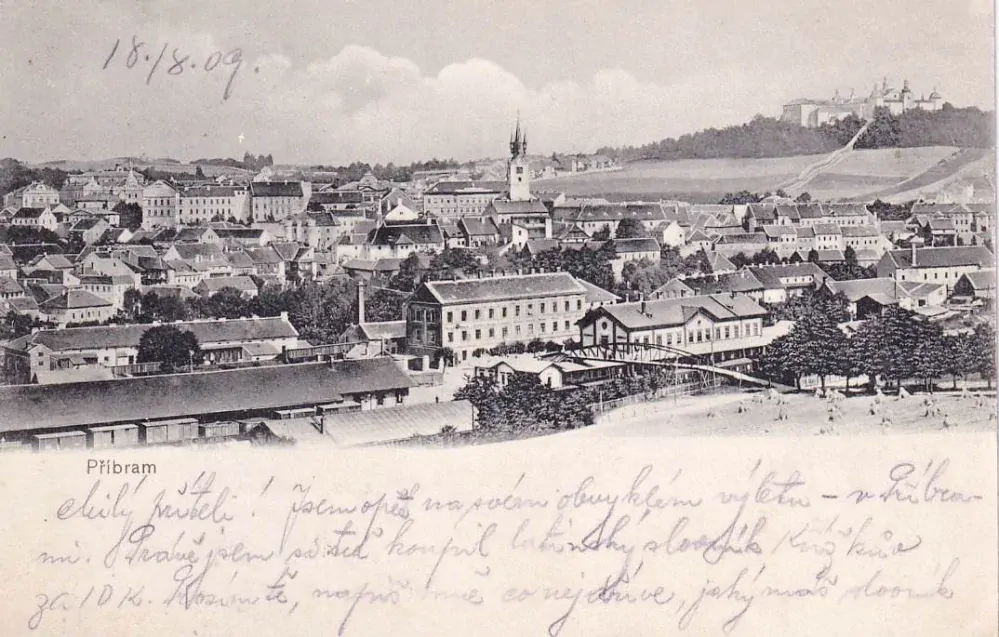 18./8.09.
Příbram
Milý příteli! Jsem opět na svém obvyklém výletu – v Příbra-
mi. Právě jsem si zde koupil latinský slovník
za 10 K. Prosím tě, napiš mě co nejdříve, jaký máš slovník